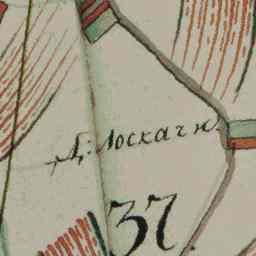 Д: Лоскачи.
37.